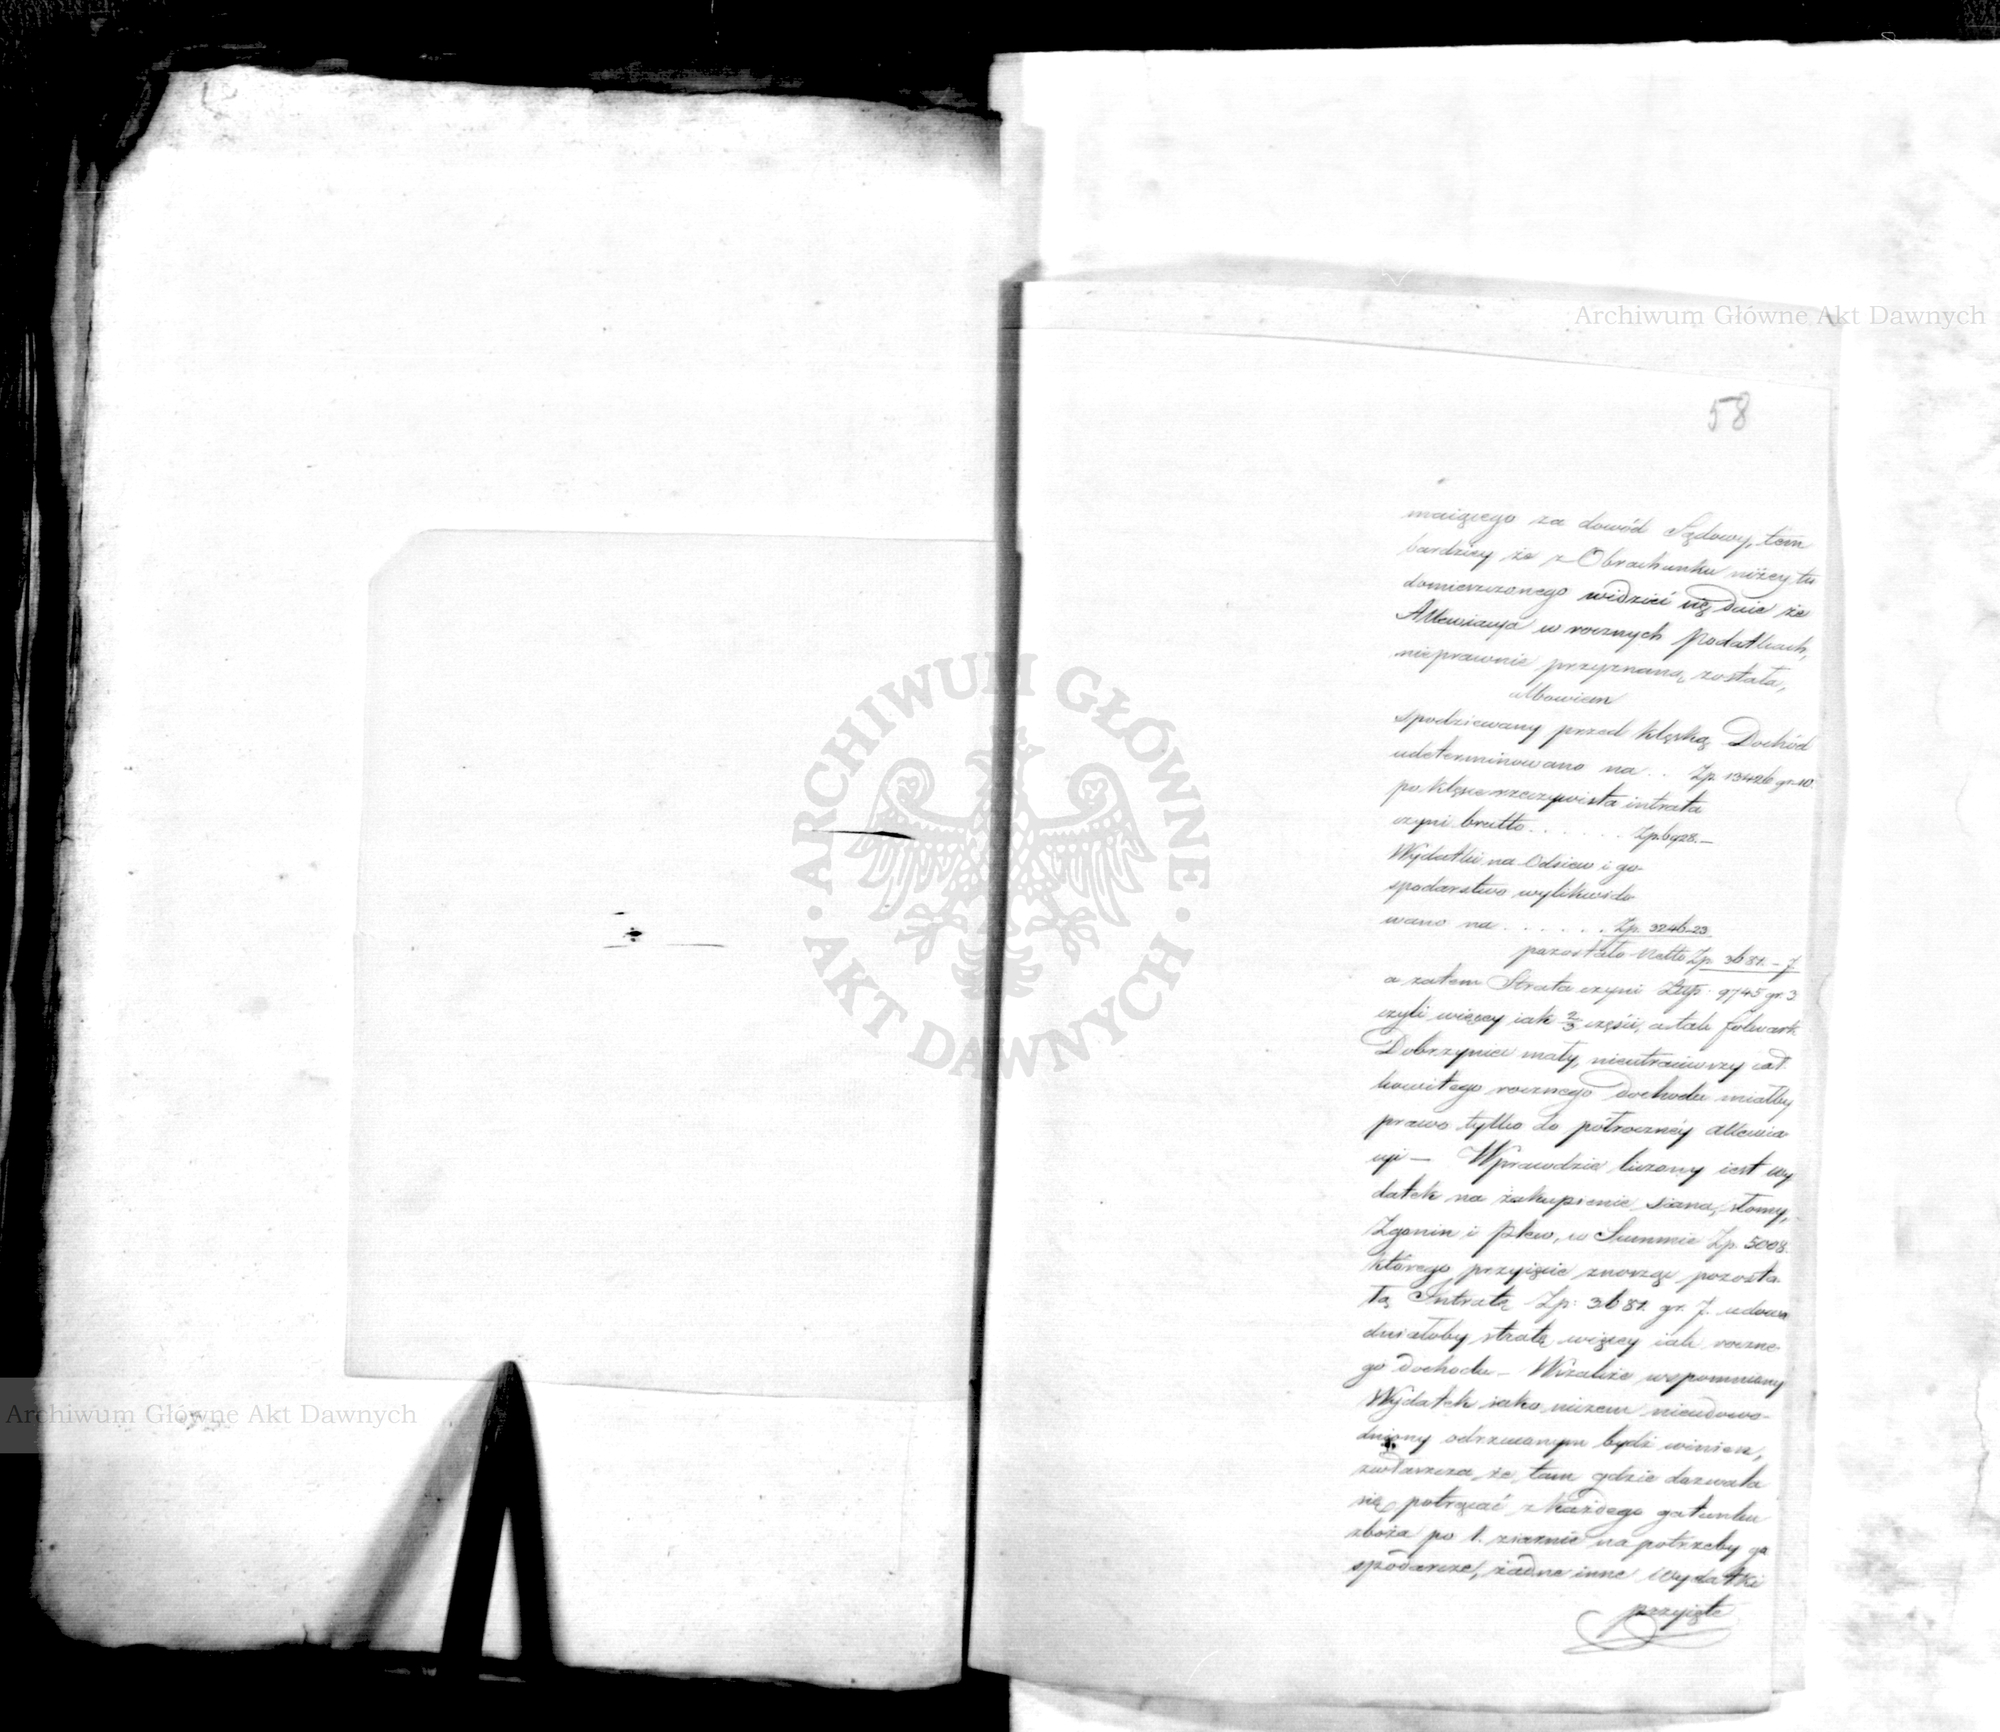 58
maiącego za dowód Sądowy, tem
bardziey że z Obrachunku niżey tu
domieszczonego widzieć się daie że
Allewiacya w rocznych Podatkach,
nieprawnie przyznaną została,
albowiem
spodziewany przed klęską Dochód
udeterminowano na . . Zp. 13426 gr. 10.
po klęsce rzeczywista intrata
czyni brutto . . . . . . Zp. 6928. —
Wydatki na Odsiew i go-
spodarstwo wylikwido
wano na . . . . . . Zp. 3246-23
pozostało Netto Zp. 3681. - 7.
a zatem Strata czyni Złp. 9745 gr. 3
czyli więcey iak 2/3 części, a tak folwark
Dobrzyniec mały, nieutraciwszy cał
kowitego rocznego Dochodu miałby
prawo tylko do półroczney allewia
cyi — Wprawdzie liczony iest wy
datek na zakupienie siana, słomy,
Zgonin i plew, w Summie Zp. 5008.
którego przyięcie znosząc pozosta-
łą Intratę Zp: 3681. gr. 7. udowo
dniałoby stratę więcey iak roczne-
go dochodu — Wszakże wspomniany
Wydatek iako niczem nieudowo-
dniony odrzucanym bydź winien,
zwłaszcza że tam gdzie dozwala
się potrącać z każdego gatunku
zboża po 1. ziarnie na potrzeby go
spodarcze, żadne inne Wydatki
przyięte
Archiwum Główne Akt Dawnych
ARCHIWUM GŁÓWNE
AKT DAWNYCH
Archiwum Główne Akt Dawnych